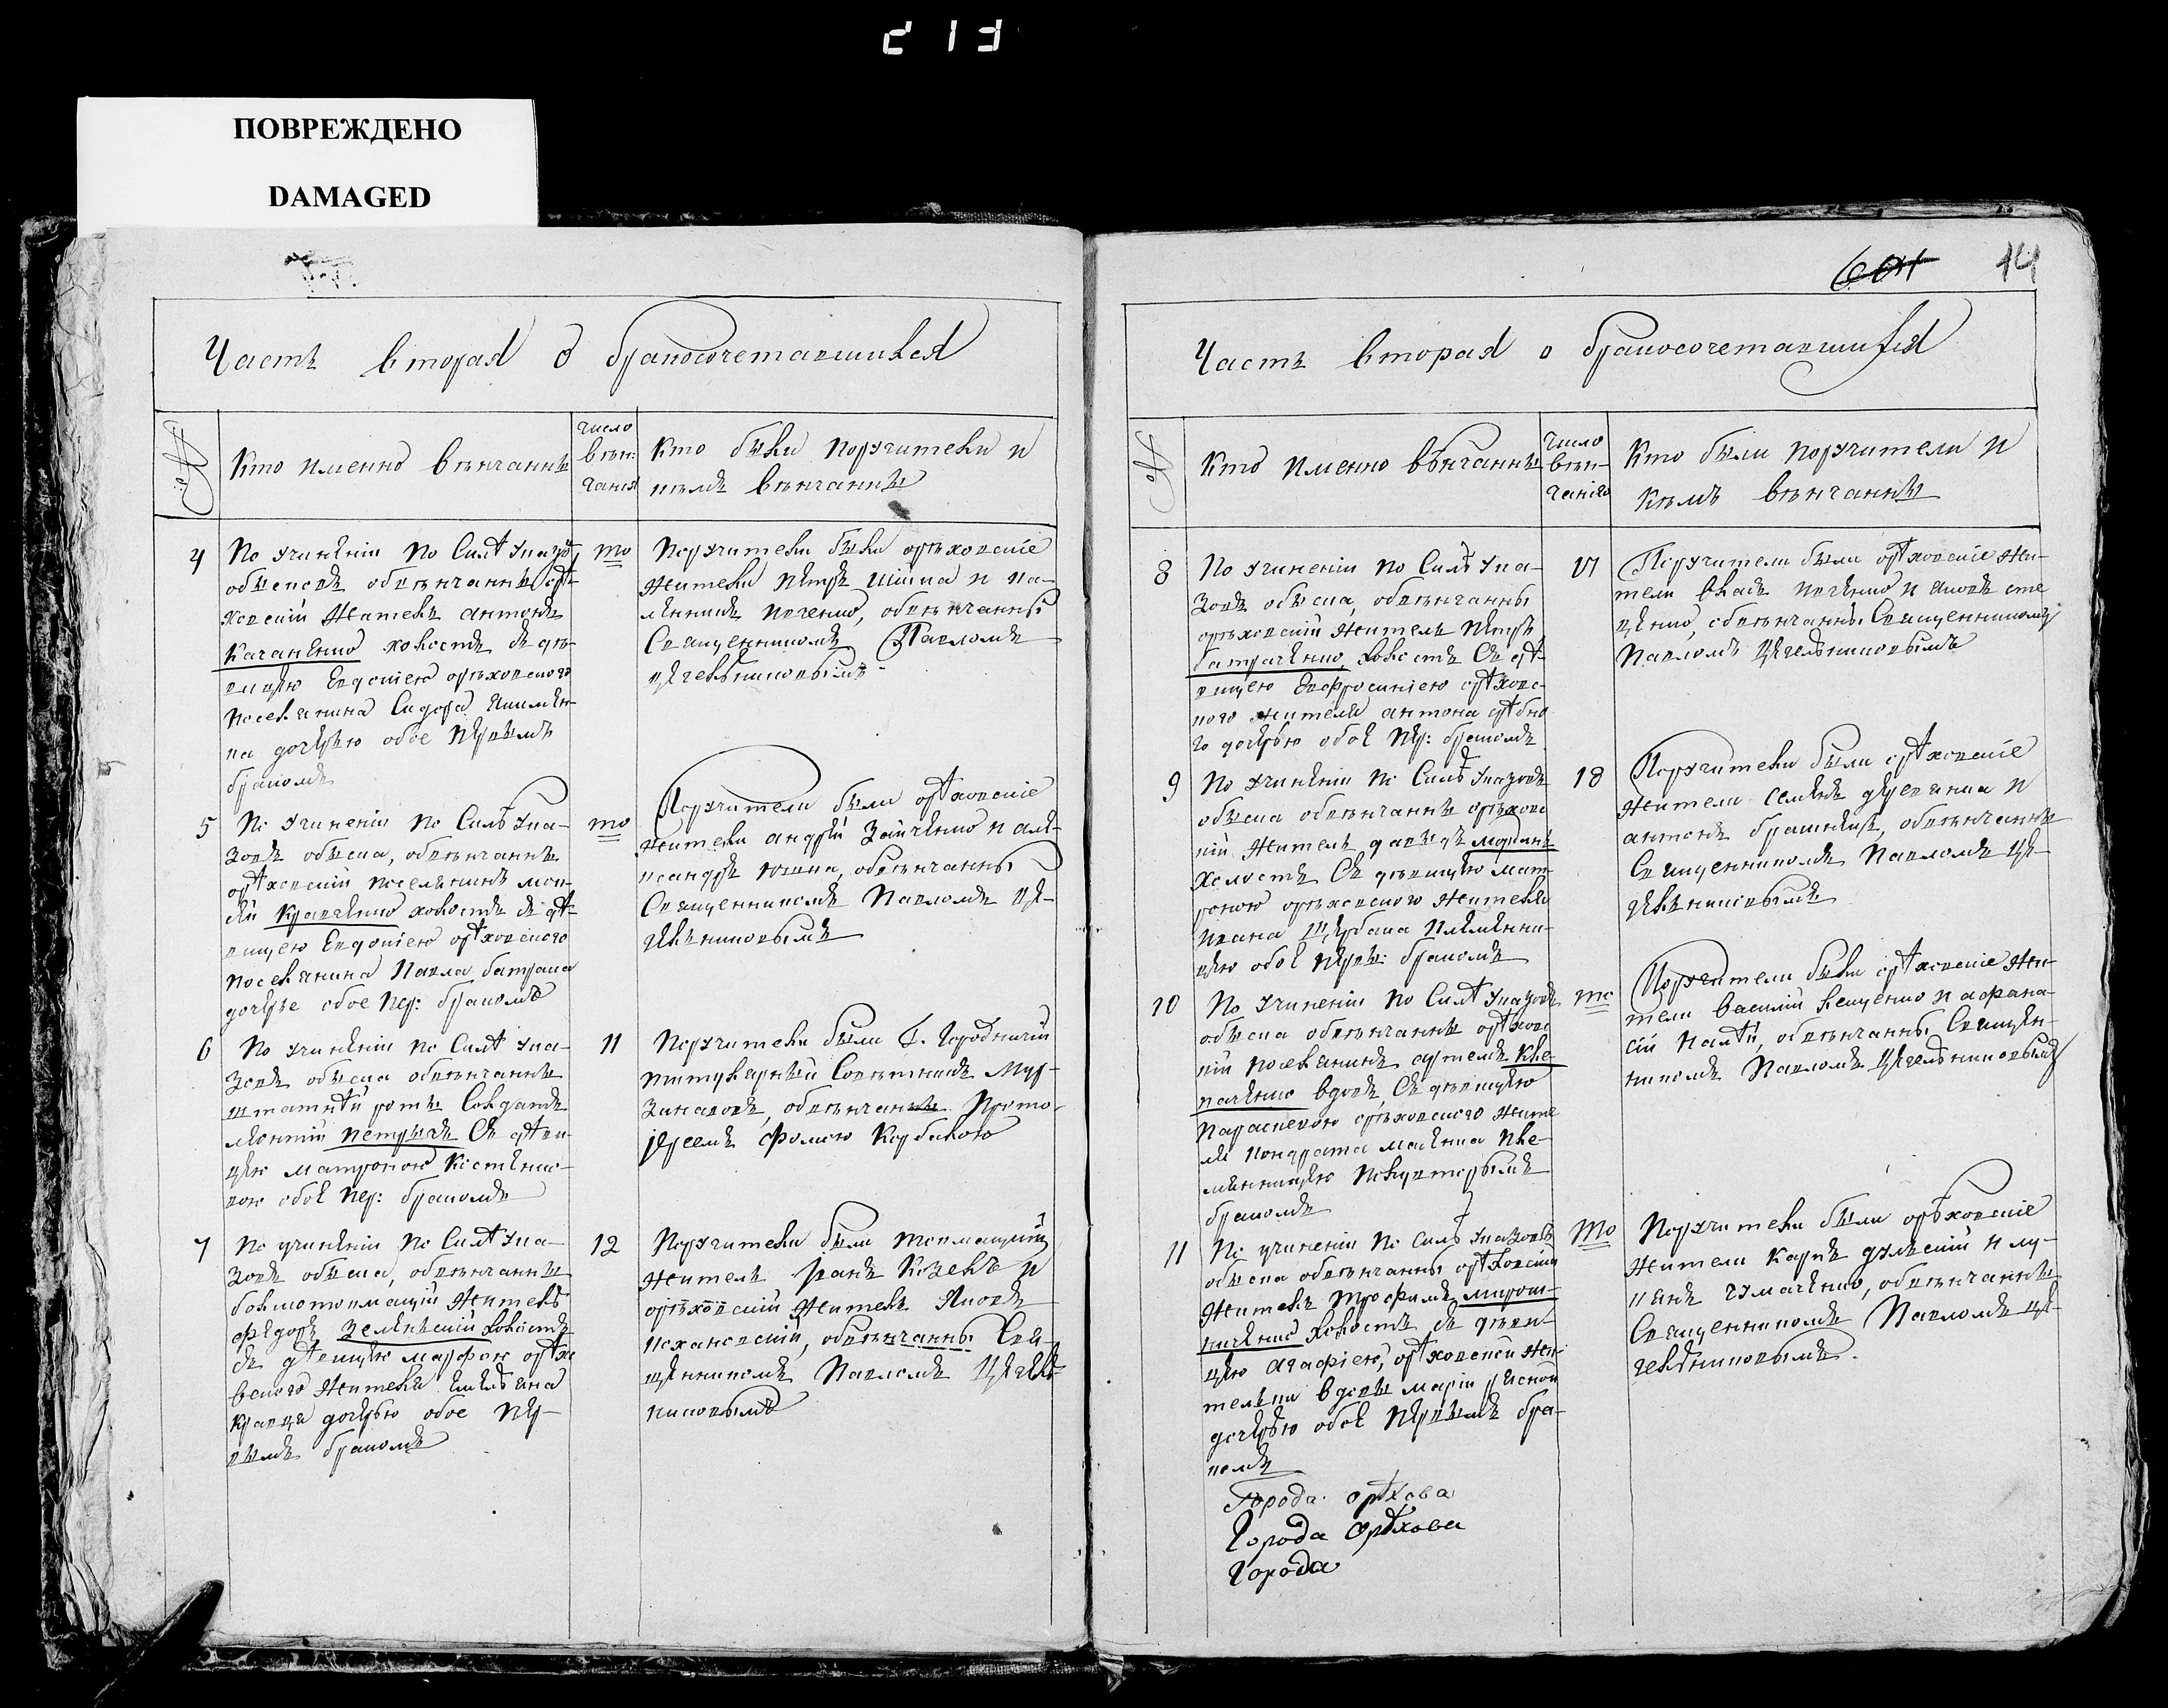 213
ПОВРЕЖДЕНО
DAMAGED
Часть вторая о бракосочетавшихся
№
Кто именно вѣнчаны
число
вѣн:
чания
Кто были поручители и
кѣмъ вѣнчаны
4
По учиненіи по силѣ указовъ
обысковъ обвѣнчаны орѣ-
ховскій житель антонъ
Качаненко холостъ съ дѣ-
вицею Евдокіею орѣховского
поселянина Сидора
дочерью обое первымъ
бракомъ
то
Поручители были орѣховскіе
жители Петръ Шійка и
Печенко, обвѣнчанны
Священникомъ Павломъ
Цегельниковымъ
5
По учиненіи по силѣ ука-
зовъ обыска, обвѣнчаны
орѣховскій поселянинъ мои-
сѣй Кравченко холостъ съ дѣ-
вицею Евдокіею орѣховского
поселянина Павла батрака
дочерье обое пер: бракомъ
то
Поручители были орѣховскіе
жители андрей Зайченко и але-
ксандръ Юшка, обвѣнчанны
Священникомъ Павломъ Це-
гельниковымъ
6
По учиненіи по силѣ ука-
зовъ обыска обвѣнчаны
штатной роты солдатъ
леонтій съ дѣви-
цею матроною Костенко-
вою обоѣ пер: бракомъ
11
Поручители были Г. Городничій
титулярный Совѣтникъ Мур-
зинаковъ, обвѣнчаны Прото-
іереемъ Фомою Корбаковою
7
По учиненіи по силѣ ука-
зовъ обыска, обвѣнчаны
болшотокмацкій житель
Федоръ Зеленскій холостъ
съ дѣвицею марфою орѣхо
вского жителя емельяна
Кравца дочерью обое пер-
вымъ бракомъ
12
Поручители были токмацкій
житель Козелъ и
орѣховскій житель Яковъ
обвѣнчанны Свя-
щенникомъ Павломъ Цегель
никовымъ
14
Часть вторая о бракосочетавшихся
№
Кто именно вѣнчаны
число
вѣн-
чанія
Кто были поручители и
кѣмъ вѣнчаны
8
По учиненіи по силѣ ука-
зовъ обыска, обвѣнчаны
орѣховскій житель Петръ
холостъ съ дѣ-
вицею Евфросиніею орѣховс-
кого жителя антона
го дочерью обоѣ пер: бракомъ
17
Поручители были орѣховскіе жи-
тели власъ Печенко и яковъ сте
ценко, обвѣнчаны Священникомъ
Павломъ Цегельниковымъ
9
По учиненіи по силѣ указовъ
обыска обвѣнчаны орѣховс
кій житель давыдъ
холостъ съ дѣвицею мат-
роною орѣховского жителя
ивана Щербака племянни-
цею обоѣ первы: бракомъ
18
Поручители были орѣховскіе
жители Семенъ деревянка и
антонъ обвѣнчаны
Священникомъ Павломъ Це-
гельниковымъ
10
По учиненіи по силѣ указовъ
обыска обвѣнчаны орѣховс
кій поселянинъ артемъ
вдовъ, съ дѣвицею
Параскевою орѣховского жите
ля кондрата пле-
мянницею
бракомъ
то
Поручители были орѣховскіе жи-
тели василій и афана-
сій Палѣй, обвѣнчаны Священ-
никомъ Павломъ Цегельниковымъ
11
По учиненіи по силѣ указовъ
обыска обвѣнчаны орѣховскій
житель трофимъ мирош-
ниченко холостъ съ дѣви-
цею агафіею, орѣховской жи-
тельки вдовы маріи
дочерью обоѣ первымъ бра-
комъ
то
Поручители были орѣховскіе
жители Карпъ и лу-
киянъ чумаченко, обвѣнчаны
Священникомъ Павломъ Це-
гельниковымъ.
Города орѣхова
Города Орѣхова
Города